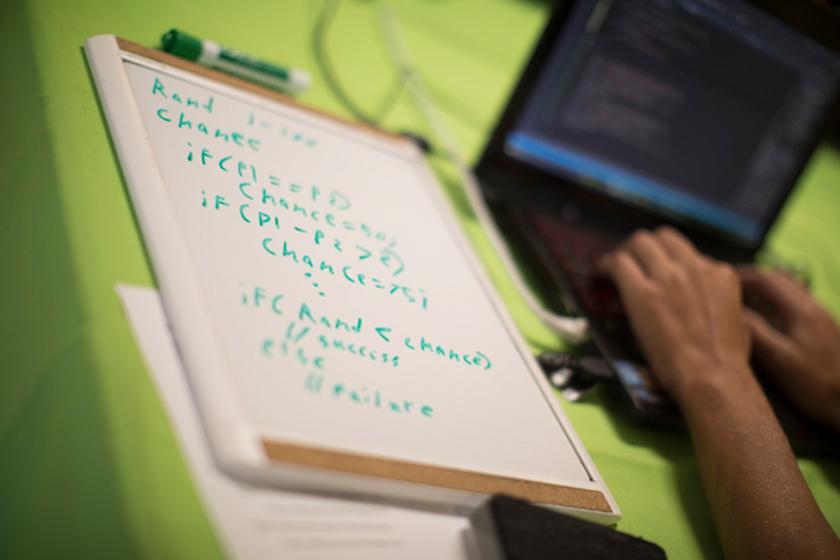 Rand 1-100
chance
if(p1==p2)
chance=50;
if(p1-p2>2)
chance=75;
if(Rand < chance)
//success
else
//failure